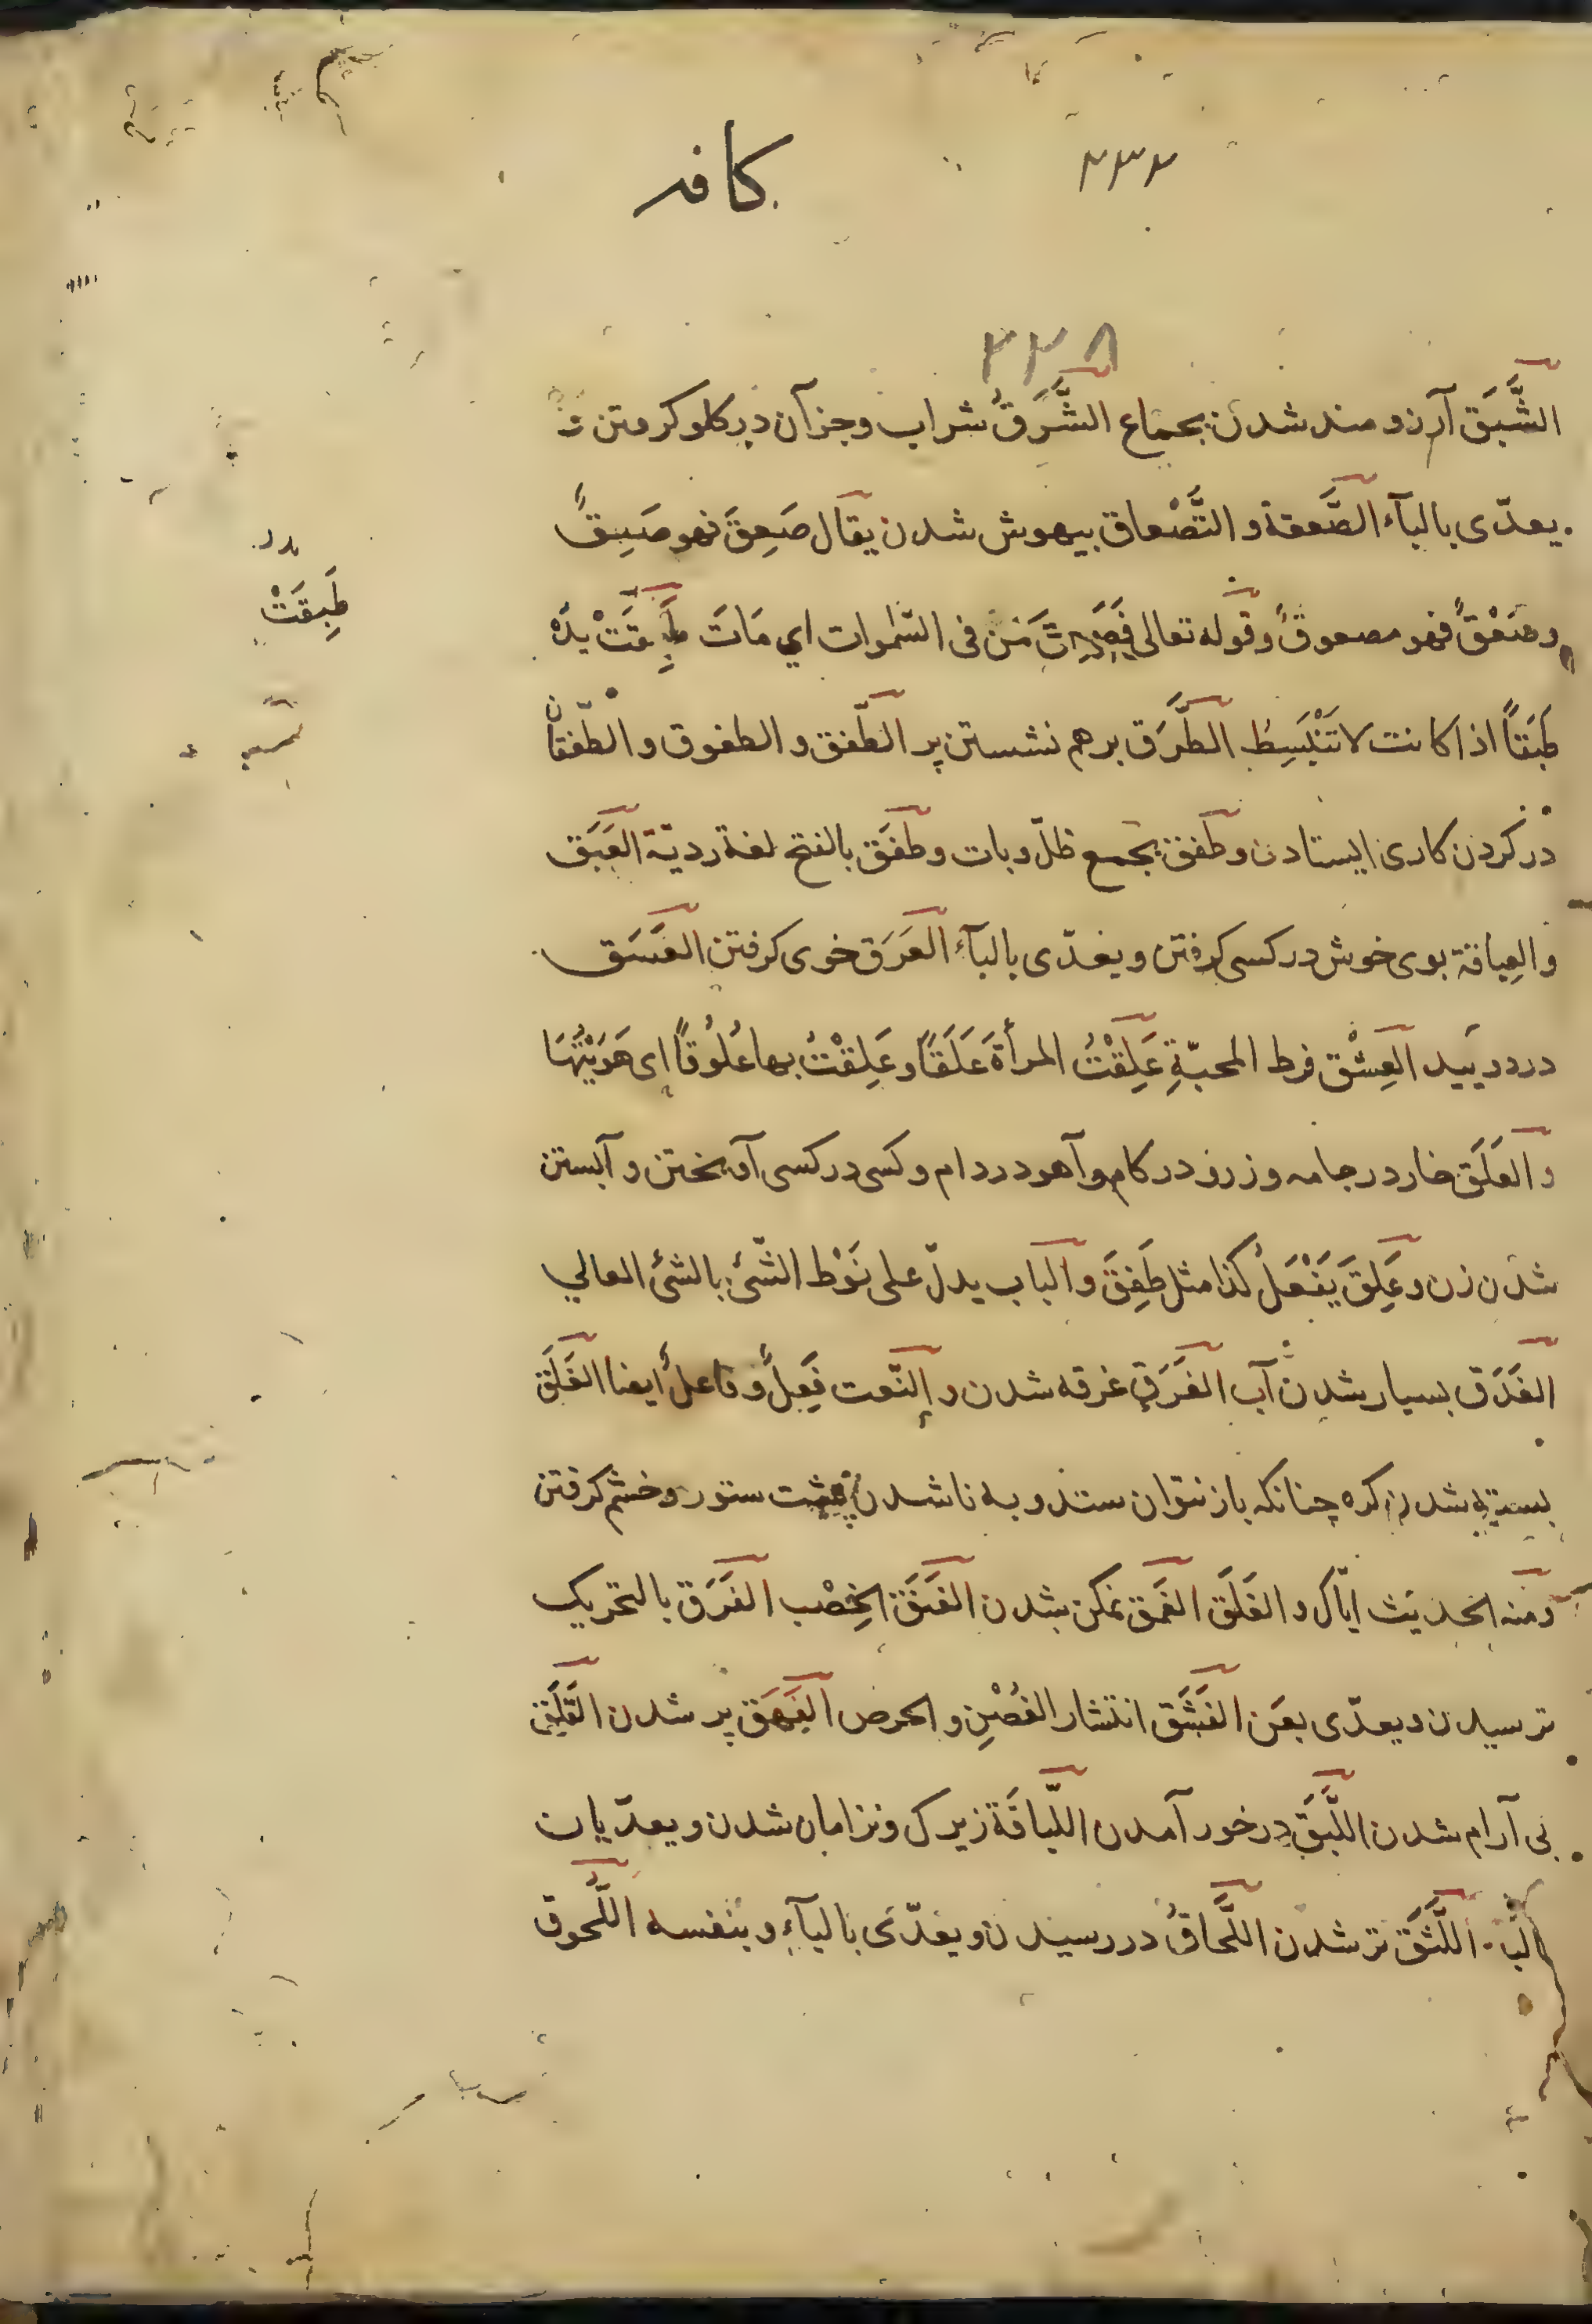 ۳۳۳
كافر
۳۳۸
الشَّبَق آرزومند شدن بجماع الشَّرَقُ شراب وجز آن در كلو كرفتن و
يعدّى بالبآء الصَّعقة و التَّصْعاق بيهوش شدن يقال صَعِقَ فهو صَعِقٌ
وصَعْقٌ فهو مصعوقٌ وقوله تعالى فَصَعِقَ مَنْ فى السّموات اي مَاتَ طَبِقَتْ يدُهُ
طَبِقَتْ
طَبَقًا اذا كانت لا تَنْبَسِطُ الطَّرَق برهم نشستن پر الطَّفَق و الطفوق و الطّفقان
در كردن كارى ايستادن وطَفِق بجمع ظلّ وبات وطفَق بالفتح لغة رديّة العَبَق
والعِباقة بوى خوش در كسى كرفتن ويعدّى بالبآء العَرَق خوى كرفتن العَسَق
دردوييد العِشْق فرط المحبّةِ عَلِقْتُ المرأةَ عَلَقًا وعَلِقْتُ بها عُلُوقًا اى هَوَيْتُهَا
و العَلَق خار در جامه و زرو در كام وآهو در دام وكسى در كسى آويختن و آبستن
شدن زن و عَلِقَ يَفْعَلُ كذا مثل طَفِقَ والباب يدلّ على نَوْط الشّئ بالشئ العالي
الغَدَق بسيار شدن آب الغَرَق غرقه شدن و النّعت فَعِلٌ وفاعلٌ ايضا الغَلَق
بسته شدن كره چنانكه باز نتوان ستد وبه ناشدن پشت ستور وخشم كرفتن
ومنه الحديث ايّاك و الغَلَق الغَمَق نمكن شدن الفَنَق الخِصْب الفَرَق بالتحريك
ترسيدن ويعدّى بعَن الفَشَق انتشار الغُصْنِ و الحرص الفَهَق پر شدن القَلَق
بى آرام شدن اللَّبَق درخور آمدن اللَّباقَة زيرك وتزامان شدن ويعدّيان
بالبآء اللَّثَق تر شدن اللَّحاقُ در رسيدن ويعدّى بالبآءِ وبنفسه اللُّحوق